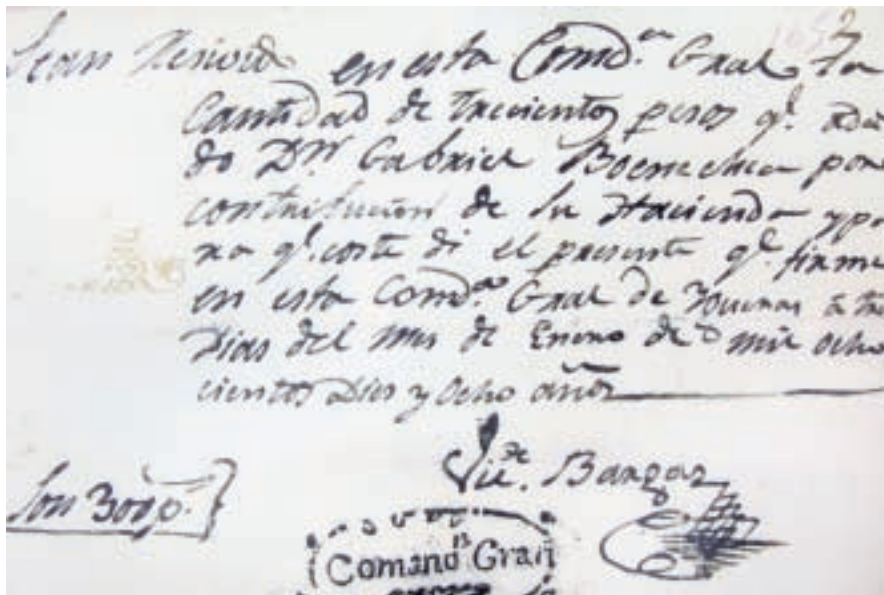 en esta Comd.ª Gral la
Cantidad de treciento pesos q.e
do D.n Gabriel Boenechea por
contribucion de su Hacienda y pa
ra q.e coste di el presente q.e firme
en esta Comd.ª Gral de a tre
Dias del mes de Enero de mil ocho
cientos Dies y Ocho años
Vic.te Bargas
Son 300 p.s
Comand.n Gral